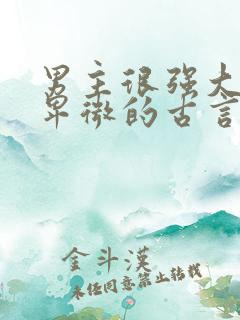 男主很强大
卑微的古言
金斗漢
未经同意禁止转载